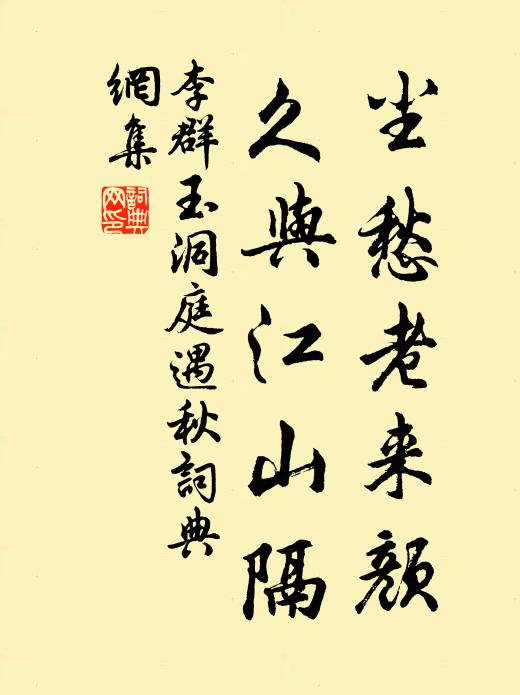 坐愁老来颜
久與江山隔
李群玉洞庭遇秋詞典
網集
詞典網印